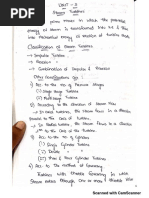 UNIT - II
Steam Turbines
prime mover in which the potential
energy of steam is transformed into K.E & this
into Mechanical energy of rotation of turbine shaft.
Classification of Steam Turbine
→ Impulse Turbine
→ Reaction "
→ Combination of Impulse & Reaction
Other classifications are :
1) Acc. to the no. of Pressure Stages
(i) Single Stage
(ii) Multi "
2) According to the direction of Steam flow
→ In Axial turbine, the Steam flows in a
direction Parallel to the axis of the turbine.
→ In Radial turbine, the Steam flows in a direction
to the axis of the turbine.
3) Acc. to the no. of Cylinders
(i) Single Cylinder Turbine
(ii) Double " "
(iii) Three & Four Cylinder Turbine
4) Acc. to the method of Governing
Turbines with throttle Governing in which
steam enters through one or more throttle valve
Scanned with CamScanner